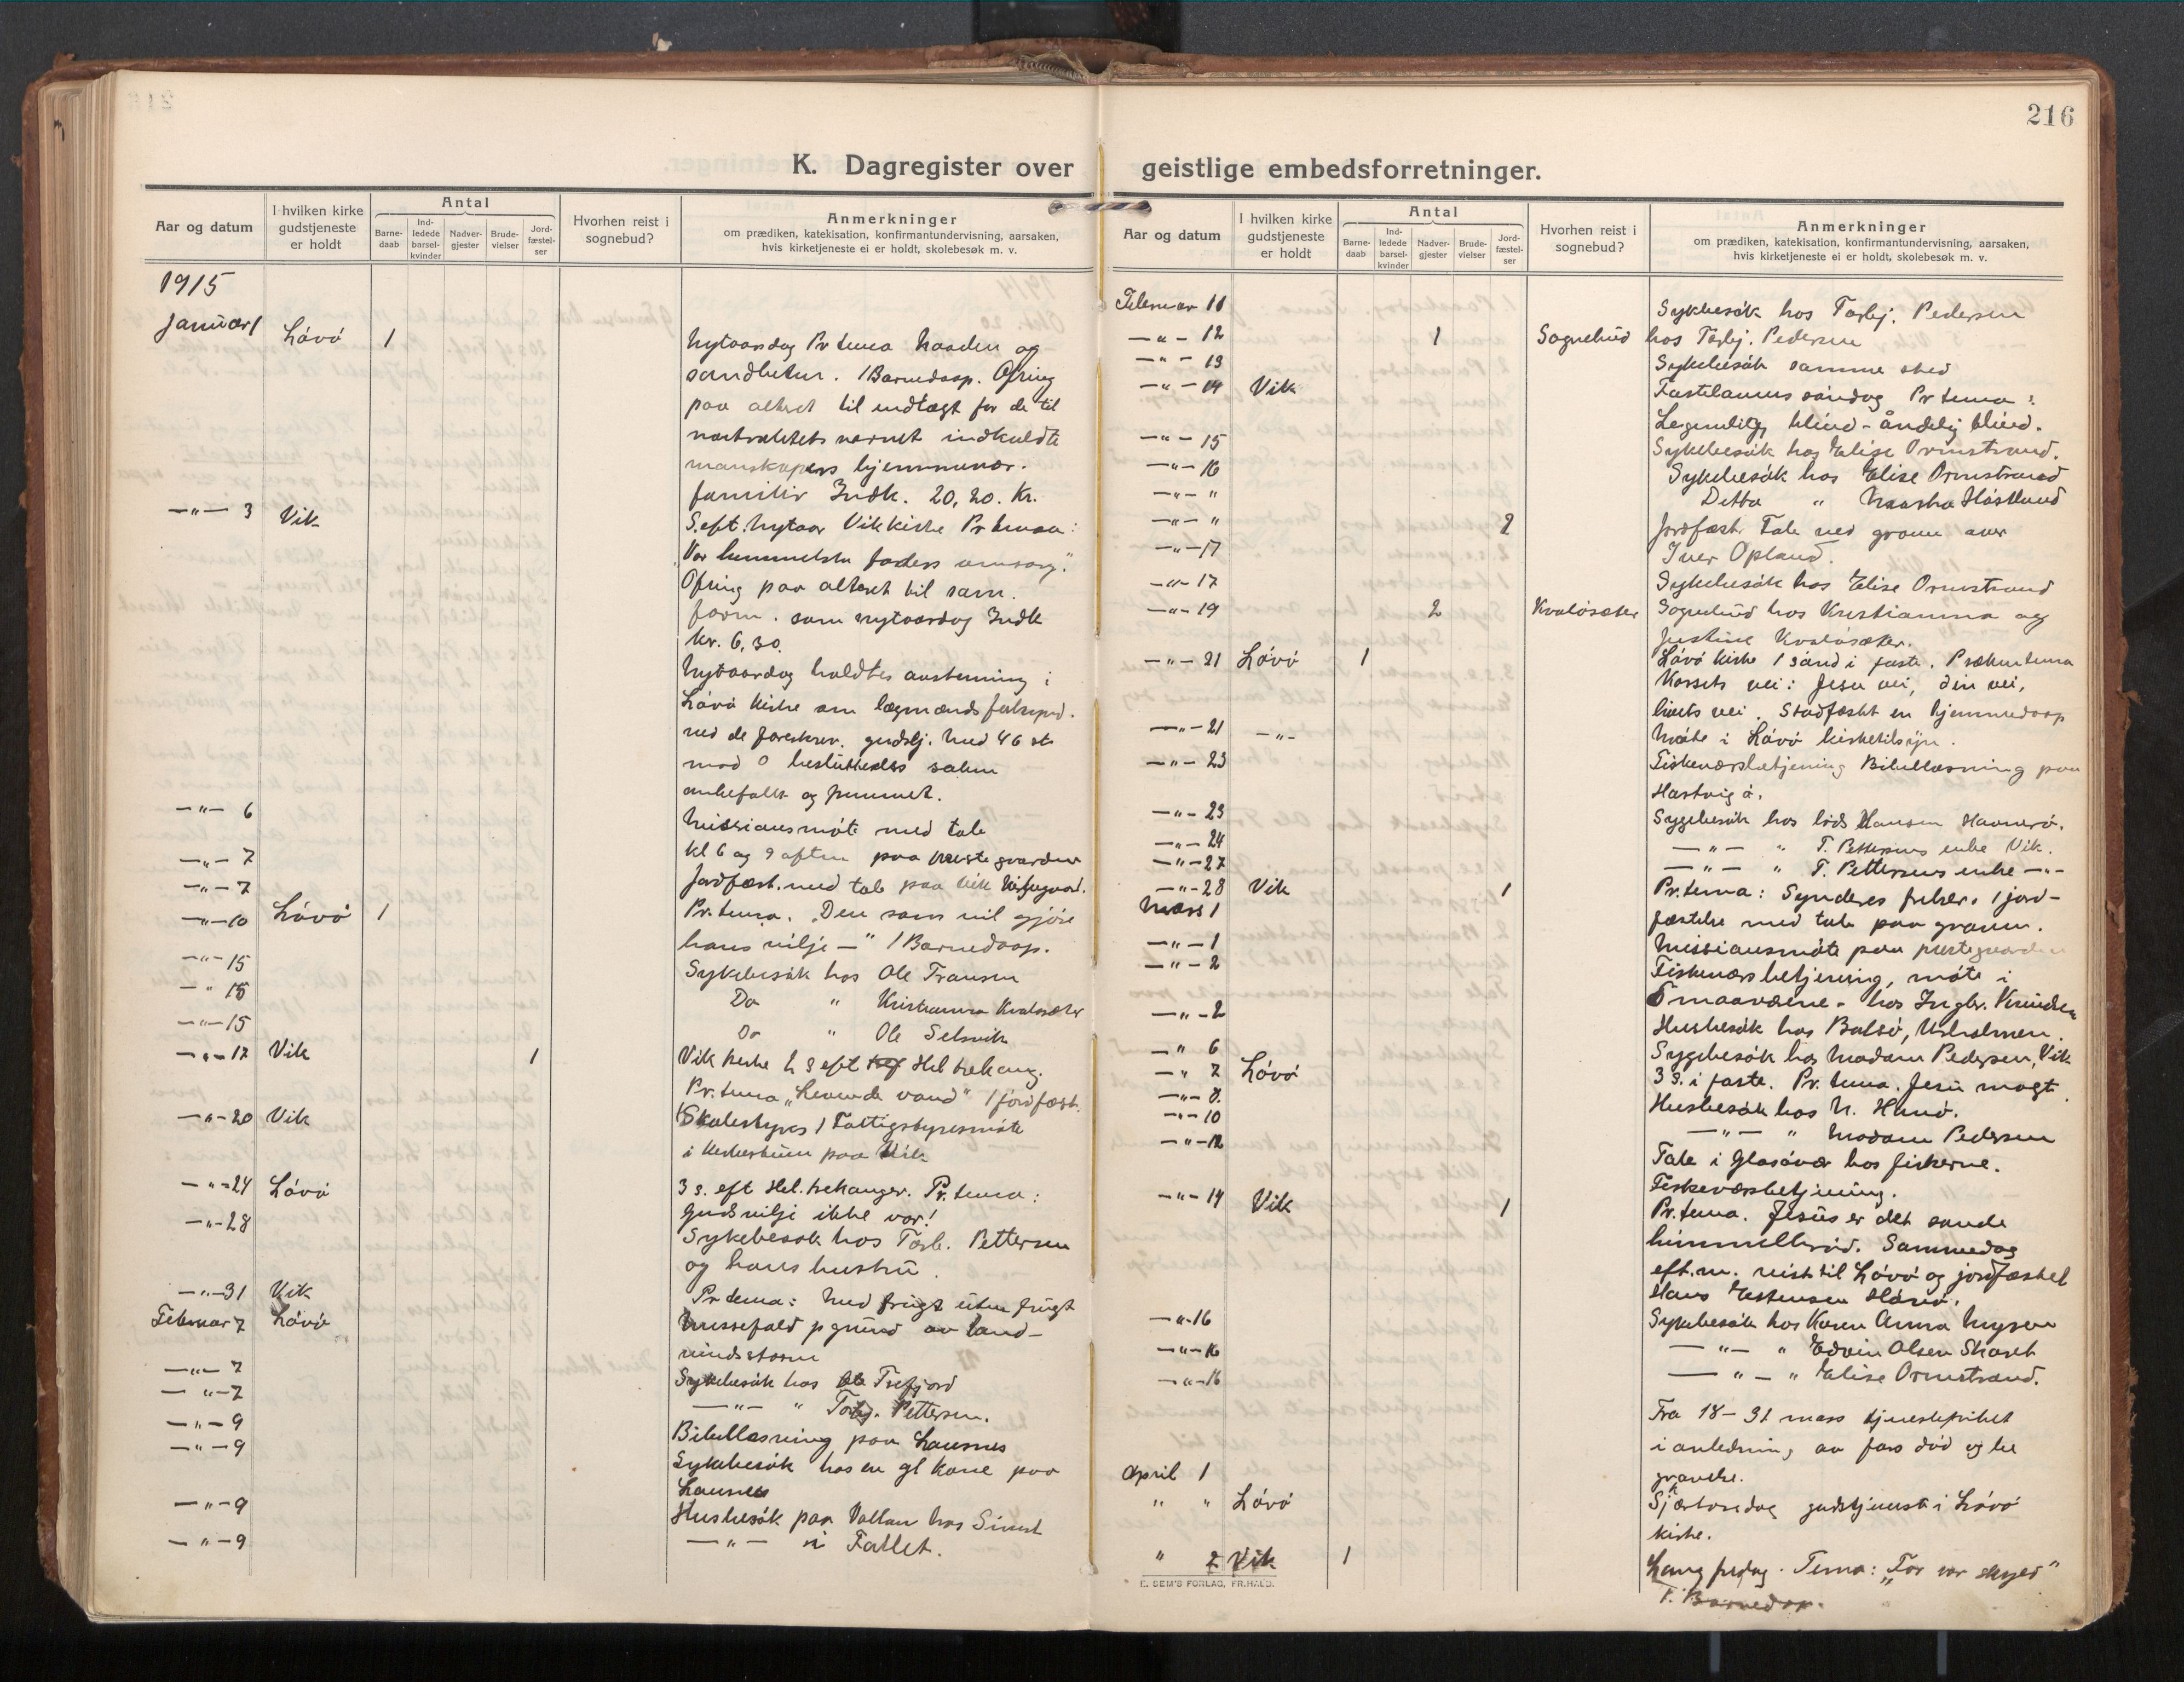 216
K. Dagregister over geistlige embedsforretninger.
Aar og datum
I hvilken kirke gudstjeneste er holdt
Antal
Barnedaab
Indledede barselkvinder
Nadvergjester
Brudevielser
Jordfæstelser
Hvorhen reist i sognebud?
Anmerkninger
om prædiken, katekisation, konfirmantundervisning, aarsaken,
hvis kirketjeneste ei er holdt, skolebesøk m. v.
1915
Januar 1 Lövö 1 Nytaarsdag Pr tema Naaden og
sandheten. 1 Barnedaap. Ofring
paa alteret til indtægt for de til
nøitralitetsvernet indkaldte
mandskapers hjemmevær.
familier Indk. 20,20. Kr.
—"— 3 Vik S. eft. Nytaar Vik kirke Pr temaa:
"Vor himmelske faders omsorg."
Ofring paa alteret til sam.
form. som nytaarsdag Indk
kr. 6,30.
Nytaarsdag holdtes avstemning i
Lövö kirke om lægmænds
ved de foreskrev. gudstj. Med 46 st.
mod 0 besluttedes saken
anbefalt og fremmet.
—"— 6 Missionsmöte med tale
kl 6 og 9 aften paa prestegaarden
—"— 7 Jordfæst. med tale paa Vik kirkegaard.
—"— 7
—"—10 Lövö 1 Pr. tema. "Den som vil gjöre
hans vilje —" 1 Barnedaap.
—"—15 Sykebesök hos Ole Fransen
—"15 Do " Kristianna Kvalosæter
—"—15 Do " Ole Selsvik
—"—17 Vik 1 Vik kirke 2 S eft Hel trekong.
Pr. tema "Levende vand" 1 jordfæst.
—"—20 Vik Skolestyres / Fattigstyresmöte
i kirkestuen paa Vik
—"—24 Lövö 3 s. eft Hel. trekonger. Pr. tema:
Guds vilje ikke vor!
—"—28 Sykebesök hos Torb. Pettersen
og hans hustru.
—"—31 Vik Pr tema: Med frugt uten frugt
Februar 7 Lövö Messefald p grund av land-
vindsstorm
—"— 7 Sykebesök hos Ole Trefjord
—"—7 —"— " Torbj. Pettersen.
—"—9 Bibellæsning paa Lausnes
—"—9 Sykebesök hos en gl kone paa
Lausnes
—"—9 Husbesök paa Vallan hos Sivert
—"—9 —"— i Fallet.
Aar og datum
I hvilken kirke gudstjeneste er holdt
Antal
Barnedaab
Indledede barselkvinder
Nadvergjester
Brudevielser
Jordfæstelser
Hvorhen reist i sognebud?
Anmerkninger
om prædiken, katekisation, konfirmantundervisning, aarsaken,
hvis kirketjeneste ei er holdt, skolebesøk m. v.
Februar 11 Sykebesök hos Torbj. Pedersen
—"— 12 1 Sognebud hos Torbj. Pedersen
—"— 13 Sykebesök samme sted
—"— 14 Vik Fastelavns söndag Pr tema:
Legemlig blind - åndelig blind.
—"— 15 Sykebesök hos Elise Ormstrand.
—"— 16 Sykebesök hos Elise Ormstrand
—"— " Ditto "
—"— " 2 Jordfæst. Tale ved graven over
—"—17 Iver Opland.
—"—17 Sykebesök hos Elise Ormstrand
—"—19 2 Kvalösæter Sognebud hos Kristianna og
Justine Kvalosæter.
—"—21 Lövö 1 Lövö kirke 1 sönd i faste. Præken tema
Korsets vei: Jesu vei, din vei,
livets vei. Stadfæstet en hjemmedaap
—"—21 —"— Möte i Lövö kirketilsyn.
—"—23 Fiskeværsbetjening Bibellæsning paa
Hartvigö.
—"—23 Sygebesök hos Hansen Havnerö.
—"—24 —"— " T. Pettersens enke Vik.
—"—27 —"— " T. Pettersens enke —"—
—"—28 Vik 1 Pr. tema: Synderes frelser. 1 jord-
fæstelse med tale paa graven.
Mars 1
—"—1 Missionsmöte paa prestegaarden
—"—2 Fiskeværsbetjening, möte i
Smaaværene - hos Ingbr. Knudsen
—"—2 Husbesök hos Balsö,
—"6 Sygebesök hos Madam Pedersen, Vik
—"7 Lövö 3 S. i faste. Pr. tema. Jesu magt.
—"—8. Husbesök hos N. Hunö.
—"—10 —"— " Madam Pedersen
—"—12 Tale i Glasövær hos fiskerne.
Fiskeværsbetjening.
—"—14 Vik 1 Pr. tema. Jesus er det sande
himmelbröd. Sammedag
eft.m. reist til Lövö og jordfæstet
Hans Estensen
—"—16 Sykebesök hos Karen Anna Myren
—"—16 —"— " Edvin Olsen Skaret
—"—16 —"— " Elise Ormstrand.
Fra 18 - 31 mars tjenestefrihet
i anledning av fars död og be
gravelse.
April 1
" " Lövö Skjærtorsdag gudstjeneste i Lövö
kirke.
" 2 Vik 1 Langfredag. Tema: "For vor skyld"
1. Barnedaap.
E. SEM'S FORLAG, FR.HALD.